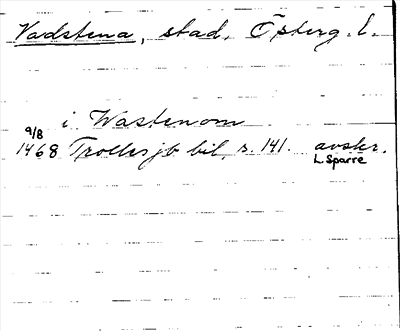 Vadstena, stad, Österg. l.
i Wastenom
9/8
1468 Trolles jb bil, s. 141. avskr.
L Sparre